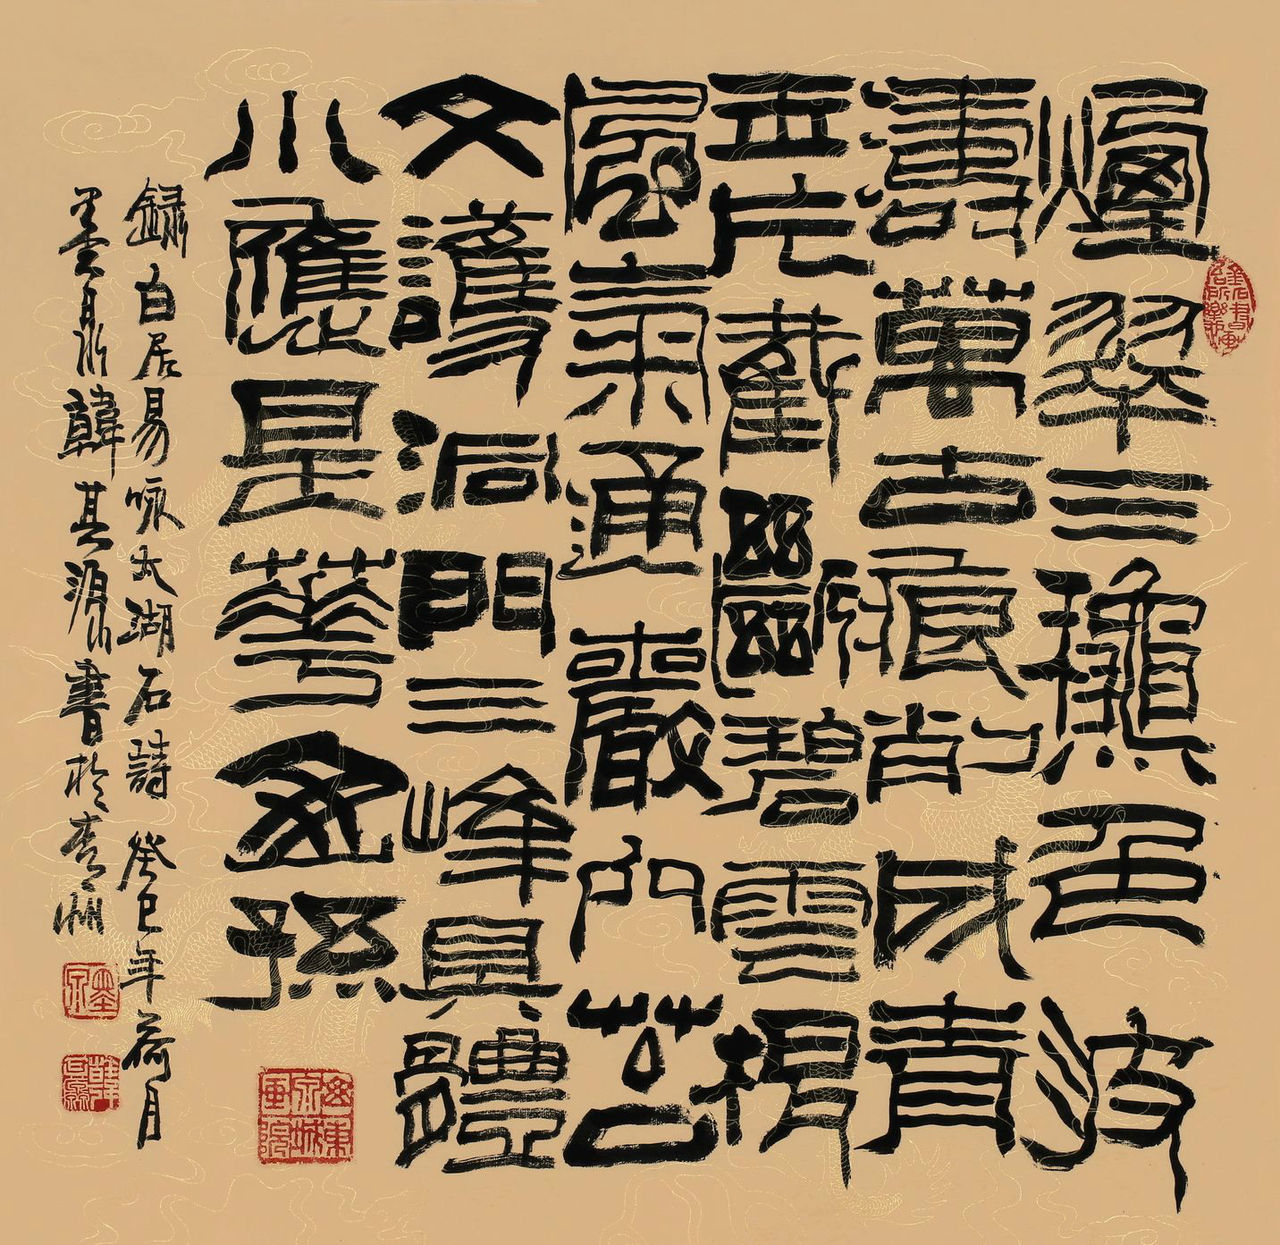 煙翠三龝色波
濤萬古痕削成青
玉片截斷碧雲根
風氣通嚴穴苔
文護洞門三峰具體
小應是華山孫
錄白居易咏太湖石詩 癸巳年荷月
韓其源書於青州